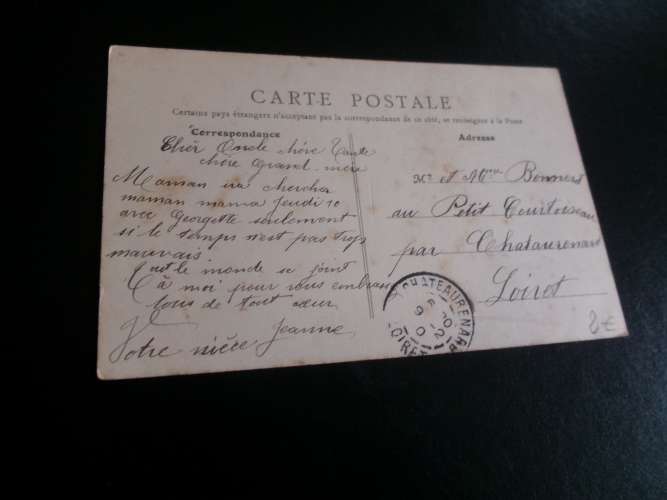 CARTE POSTALE
Certains pays étrangers n'acceptent pas la correspondance de ce côté, se renseigner à la Poste
Correspondance
Adresse
Cher Oncle chère Tante
chère Grand-mère
Maman ira chercher
maman mama jeudi 10
avec Georgette seulement
si le temps n'est pas trop
mauvais.
Tout le monde se joint
à moi pour vous embrasser
tous de tout cœur
Votre nièce Jeanne
Mr et Mme
au Petit Courtoiseau
par Chataurenard
Loiret
CHATEAURENARD
LOIRET
2€